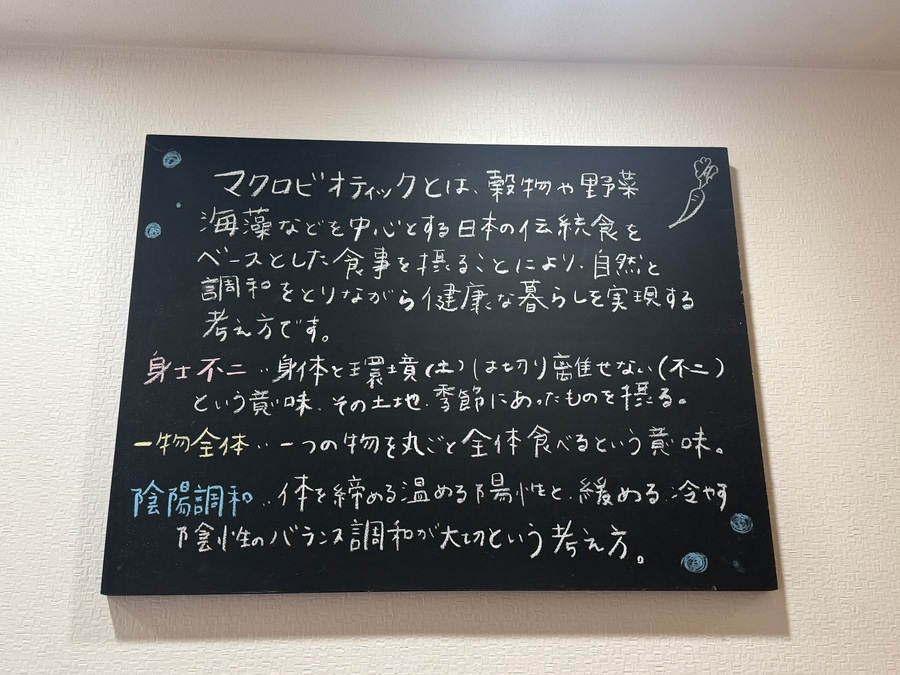 マクロビオティックとは、穀物や野菜
海藻などを中心とする日本の伝統食を
ベースとした食事を摂ることにより、自然と
調和をとりながら健康な暮らしを実現する
考え方です。
身土不二‥身体と環境(土)は切り離せない(不二)
という意味。その土地、季節にあったものを摂る。
一物全体‥一つの物を丸ごと全体食べるという意味。
陰陽調和‥体を締める温める陽性と、緩める、冷やす
陰性のバランス調和が大切という考え方。